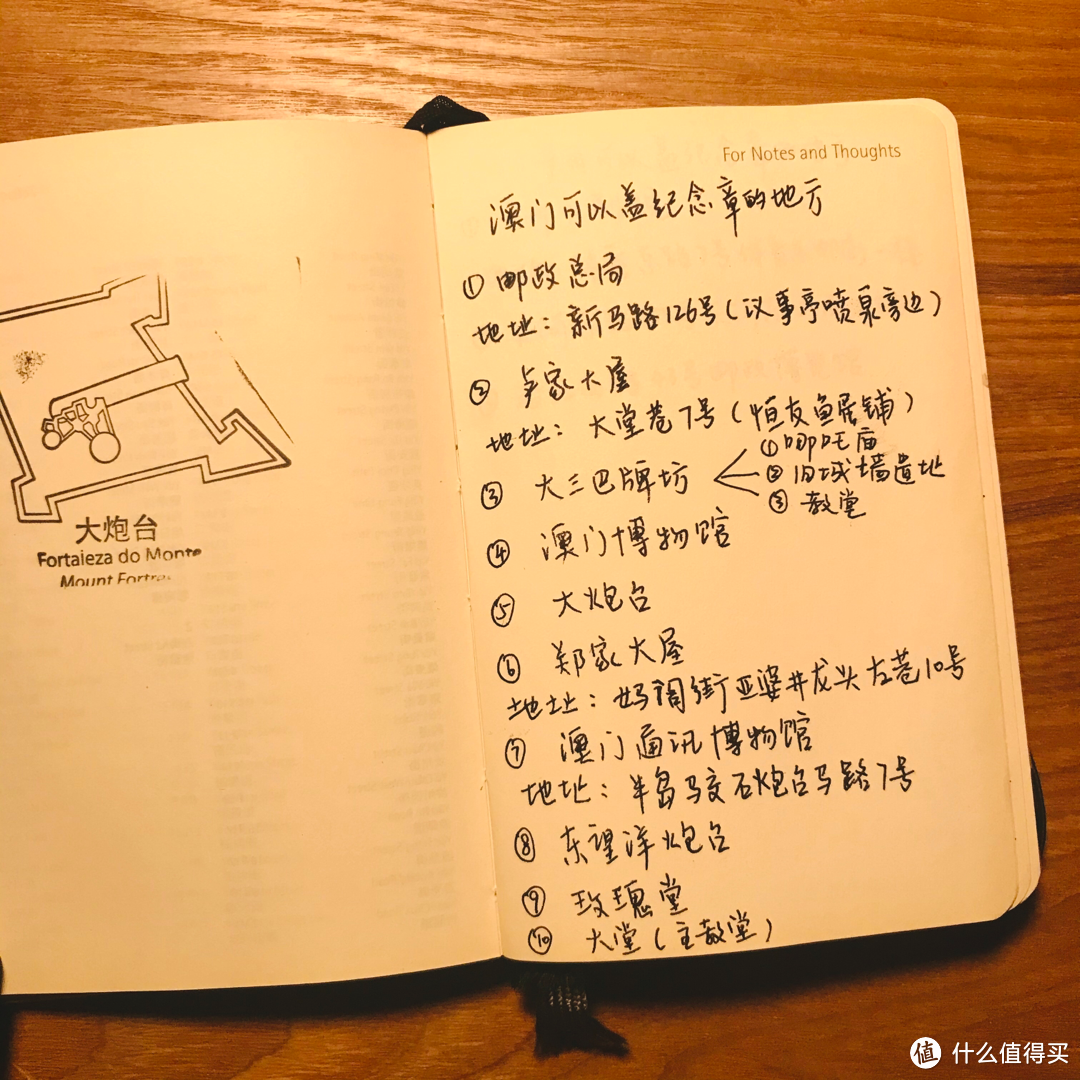 大炮台
Fortaleza do Monte
Mount Fortre
For Notes and Thoughts
澳门可以盖纪念章的地方
① 邮政总局
地址：新马路126号（议事亭喷泉旁边）
② 卢家大屋
地址：大堂巷7号（恒友鱼蛋铺）
③ 大三巴牌坊
①哪吒庙
②旧城墙遗址
③教堂
④ 澳门博物馆
⑤ 大炮台
⑥ 郑家大屋
地址：妈阁街亚婆井龙头左巷10号
⑦ 澳门通讯博物馆
地址：半岛马交石炮台马路7号
⑧ 东望洋炮台
⑨ 玫瑰堂
⑩ 大堂（主教堂）
值 什么值得买